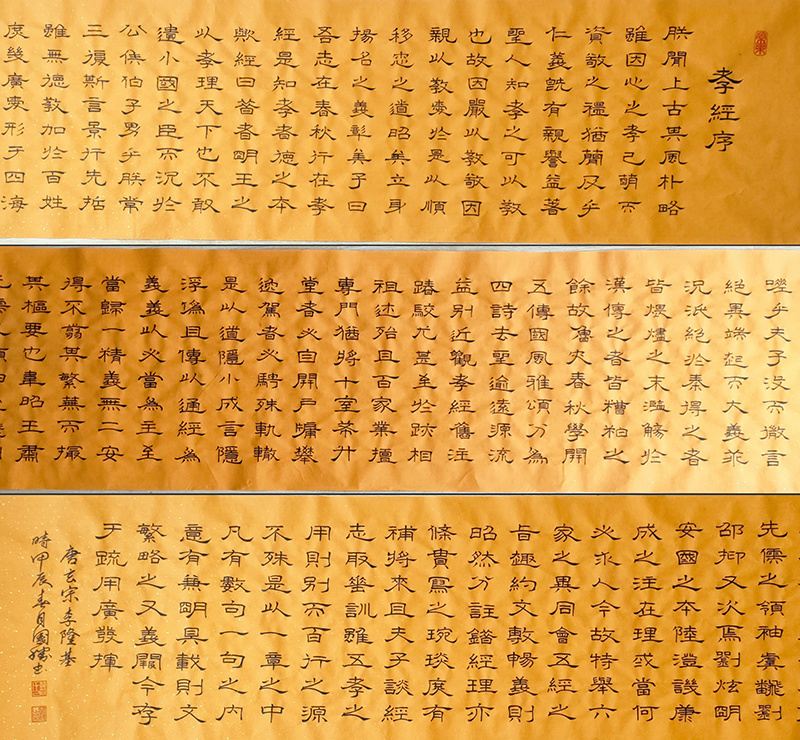 孝經序
朕聞上古其風朴略
雖因心之孝已萌而
資敬之禮猶簡及乎
仁義既有親譽益著
聖人知孝之可以教
也故因嚴以教敬因
親以教愛於是以順
移忠之道昭矣立身
揚名之義彰矣子曰
吾志在春秋行在孝
經是知孝者德之本
歟經曰昔者明王之
以孝理天下也不敢
遺小國之臣而況於
公侯伯子男乎朕常
三復斯言景行先哲
雖無德教加於百姓
庶幾廣愛形于四海
嗟乎夫子沒而微言
絕異端起而大義乖
況泯絕於秦得之者
皆煨燼之末濫觴於
漢傳之者皆糟粕之
餘故魯史春秋學開
五傳國風雅頌分為
四詩去聖逾遠源流
益別近觀孝經舊注
踳駁尤甚至於跡相
祖述殆且百家業擅
專門猶將十室希升
堂者必自開戶牖攀
逸駕者必騁殊軌轍
是以道隱小成言隱
浮偽且傳以通經為
義義以必當為主至
當歸一精義無二安
得不翦其繁蕪而撮
其樞要也韋昭王肅
先儒之領袖虞翻劉
邵抑又次焉劉炫明
安國之本陸澄譏康
成之注在理或當何
必求人今故特舉六
家之異同會五經之
旨趣約文敷暢義則
昭然分註錯經理亦
條貫寫之琬琰庶有
補將來且夫子談經
志取垂訓雖五孝之
用則別而百行之源
不殊是以一章之中
凡有數句一句之內
意有兼明具載則文
繁略之又義闕今存
于疏用廣發揮
唐玄宗李隆基
時甲辰春月國書